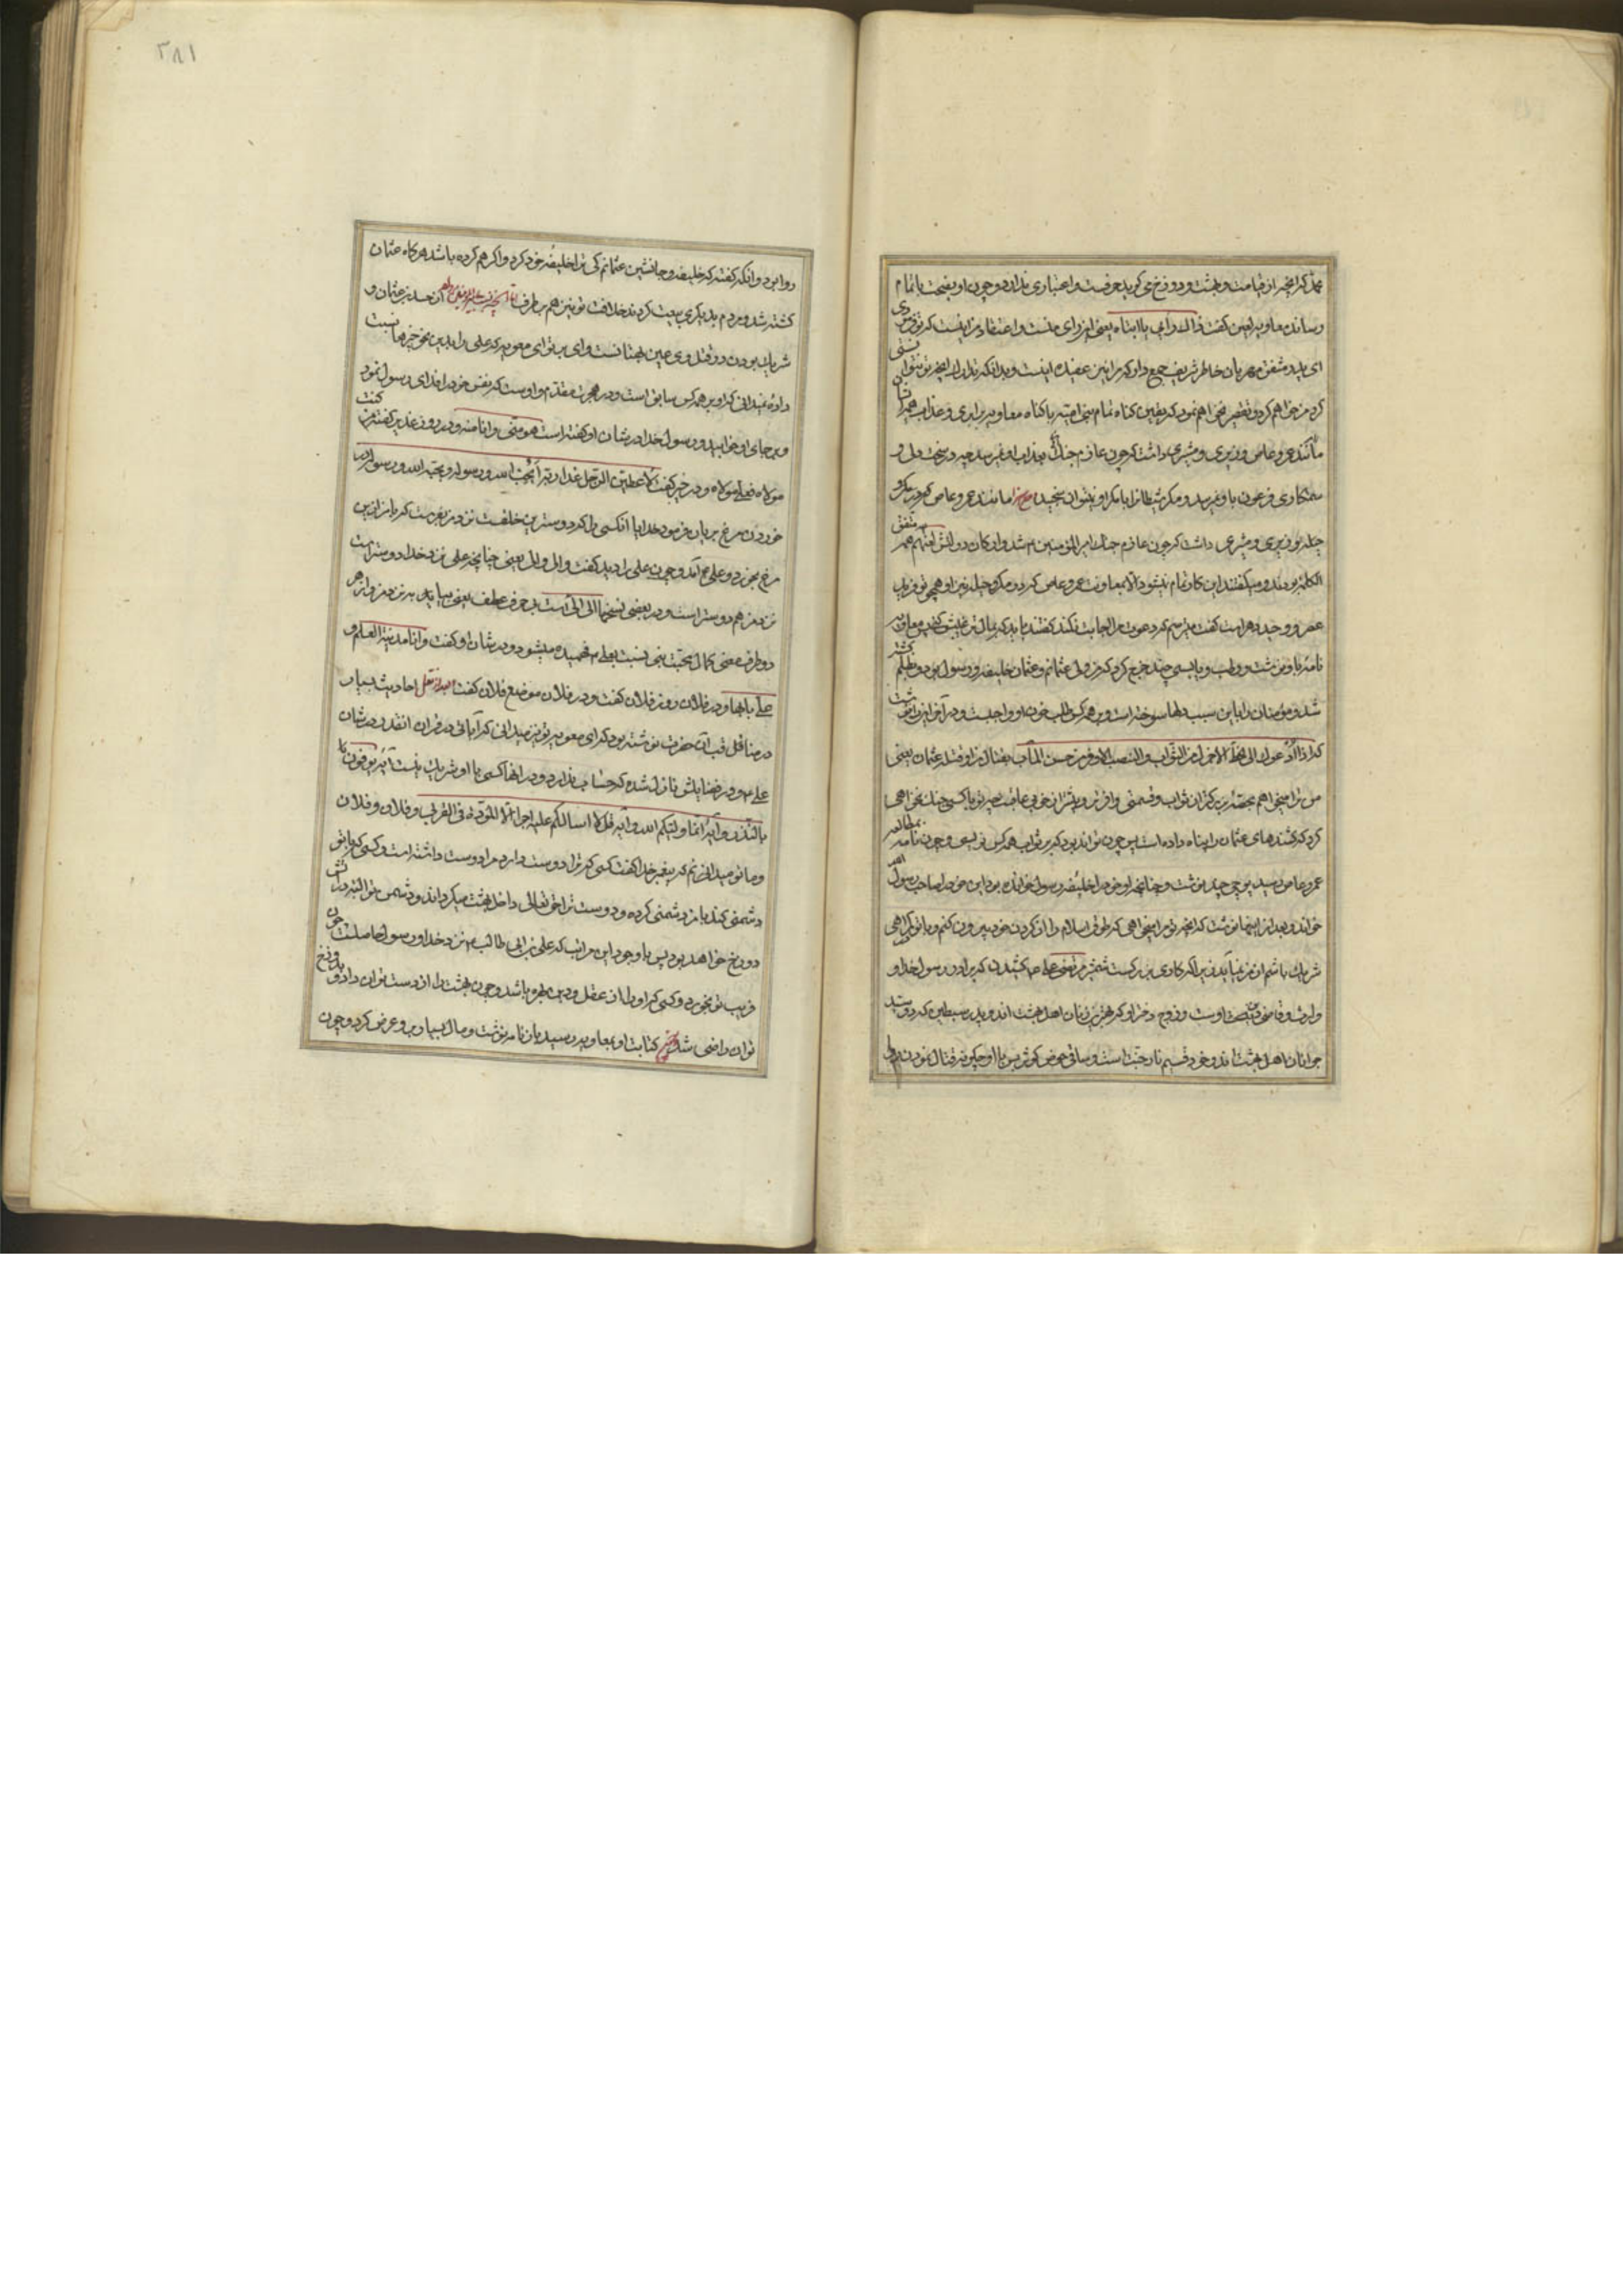 محمد که آنچه از قیامت و بهشت و دوزخ می گوید حرفیست و اعتباری ندارد و چون او نصیحت باتمام
رساند معاویه لعین گفت یا ابتاه یعنی ای منست و اعتقاد من اینست که تو فرمودی
ای پدر مشفق مهربان خاطر شریف جمع دار که مرا نیز عقیده اینست و بدانکه تدارک آنچه تو نتوانستی
کرد من خواهم کرد و تقصیر نخواهم نمود که یقین گناه تمام بنی امیه با گناه معاویه برابری و عذاب همه
مانند عمرو عاص وزیری و مشیری داشت که چون عازم جنگ بعذاب او نمیرسد چه در سخت دلی و
ستمکاری فرعون باو نمیرسد و مکر شیطانرا با مکر او نتوان سنجید مانند عمرو عاص که در مکر و
حیله بود وزیری و مشیری داشت که چون عازم جنگ امیر المؤمنین شد و ارکان دولتش همه متفق
الکلمه بودند و میگفتند این کار تمام نیشود الا بمعاونت عمرو عاص که در مکر و حیله
عصر و وحید دهر است گفت میترسم که دعوت مرا اجابت نکند گفتند باید که بمال ترغیبش کنی پس معاویه
نامه باو نوشت و چند خرج کرد که من ولی عثمانم و عثمان خلیفه رسول بود و بظلم کشته
شد و مؤمنان را باین سبب دلها سوخته است و بر همه کس طلب خون او واجبست و در آخر نوشت
که ادعوک الی الحظ الاجزل من الثواب و النصیب الاوفر من حسن المآب بقتال من آوی قتلة عثمان یعنی
من ترا میخواهم بحصه بزرگتر از ثواب و قسمتی وافرتر
کرد که کشندهای عثمان را پناه داده است پس چون تواند بود که بر ثواب همه کس و چون نامه بمطالعه
عمرو عاص رسید نوشت و چنانچه او خود را خلیفه رسول خوانده بود این خود را صاحب رسول الله
خواند و بعد از اینها نوشت که آنچه تو مرا میخواهی که طوق اسلام را از گردن خود بیرون کنم و با تو گمراهی
شریک باشم از من نیاید زیرا که کاری بزرگست شمشیر بر علی کشیدن که برادر رسول خدا و
وارث و قاضی اوست و زوج دختر او که بهترین زنان اهل بهشت اند و پدر سبطین که دو سید
جوانان اهل بهشت اند و خود قسیم نار و جنت است و ساقی حوض کوثر پس با او چگونه قتال نمودن
روا بود و آنکه گفته که خلیفه و جانشین عثمانم کی ترا خلیفه خود کرد و اگر هم کرده باشد هرگاه عثمان
کشته شد و مردم بدیگری بیعت کردند خلافت تو نیز هم بر طرف از حسد بر عثمان و
شریک بودن در قتل وی عین بهتانست وای بر تو ای معویه که علی را بدین نحو چیزها نسبت
داده نمیدانی که او بر همه کس سابق است و در هجرت مقدم و اوست که نفس خود را فدای رسول نمود
و بر جای او خوابید و رسول خدا در شان او گفته است هو منی و انا منه و در روز غدیر گفته من کنت
مولاه فعلی مولاه و در خیبر گفت لاعطین الرایة غدا رجلا یحب الله و رسوله و یحبه الله و رسوله و در
خوردن مرغ بریان فرمود خدایا آنکسی را که دوسترین خلقست نزد من بفرست که با من ازین
مرغ بخورد و علی آمد و چون علی را دید گفت والی والی یعنی چنانچه علی نزد خدا دوستر است
نزد من هم دوستر است و در بعضی نسخها الی الی است بی حرف عطف یعنی بیا پیش من و از هر
دو طرف معنی کمال محبت نبی نسبت بعلی فهمیده میشود و در شان او گفت و انا مدینة العلم و
علی بابها و در فلان روز فلان گفت و در فلان موضع فلان گفت احادیث بسیار
در مناقب آن حضرت نوشته بود که ای معویه تو نیز میدانی که آیاتی در قرآن آنقدر در شان
علی و در فضایلش نازل شده که حساب ندارد و در آنها کسی با او شریک نیست آیه یوفون
بالنذر و آیه انما ولیکم الله و آیه قل لا اسالکم علیه اجرا الا المودة فی القربی و فلان و فلان
و ما تو میدانیم که پیغمبر خدا گفت کسی که ترا دوست دارد مرا دوست داشته است و کسی که با تو
دشمنی کند با من دشمنی کرده و دوست ترا حق تعالی داخل بهشت میگرداند و دشمن ترا البته در آتش
دوزخ خواهد بود پس با وجود این مراتب که علی بن ابی طالب نزد خدا و رسول حاصلست چون
فریب تو بخورد و کسی که او را از عقل و دین بهره باشد و چون بهشت را از دست توان داد و بدوزخ
توان راضی شد کتابت او بمعاویه رسید باز نامه نوشت و مال بسیار بر وی عرض کرد و چون
۳۸۱